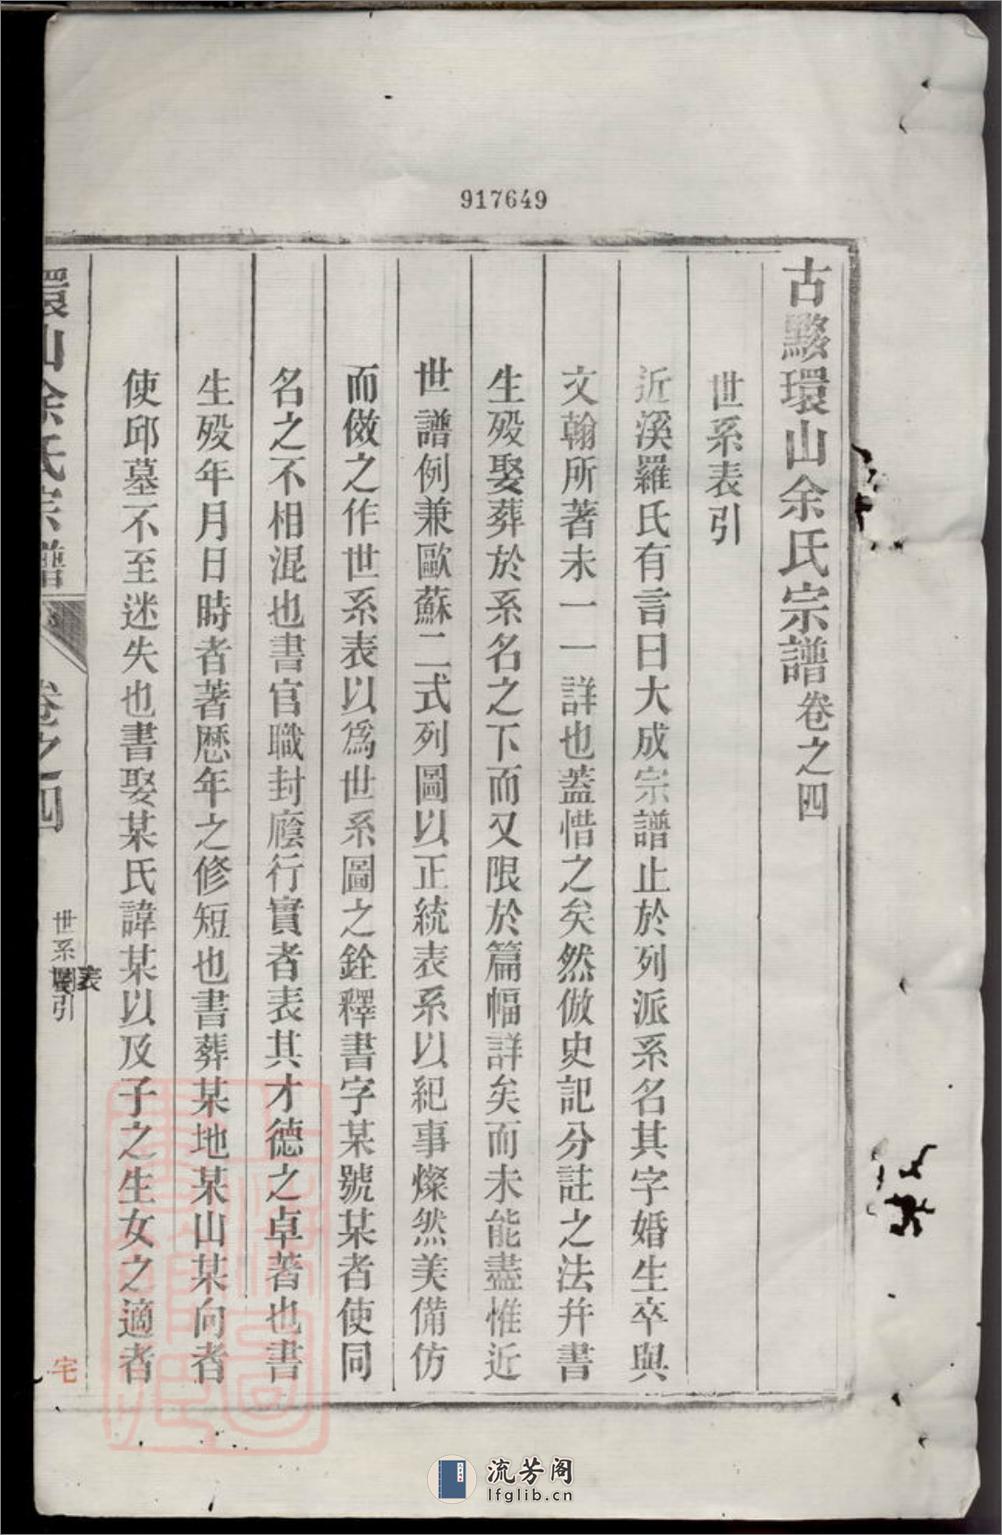 917649
古黟環山余氏宗譜卷之四
世系表引
近溪羅氏有言曰大成宗譜止於列派系名其字婚生卒與
文翰所著未一一詳也蓋惜之矣然倣史記分註之法幷書
生歿娶葬於系名之下而又限於篇幅詳矣而未能盡惟近
世譜例兼歐蘇二式列圖以正統表系以紀事燦然美備仿
而傚之作世系表以爲世系圖之銓釋書字某號某者使同
名之不相混也書官職封廕行實者表其才德之卓著也書
生歿年月日時者著歷年之修短也書葬某地某山某向者
使邱墓不至迷失也書娶某氏諱某以及子之生女之適者
環山余氏宗譜
卷之四
世系表引
宅
流芳阁
lfglib.cn